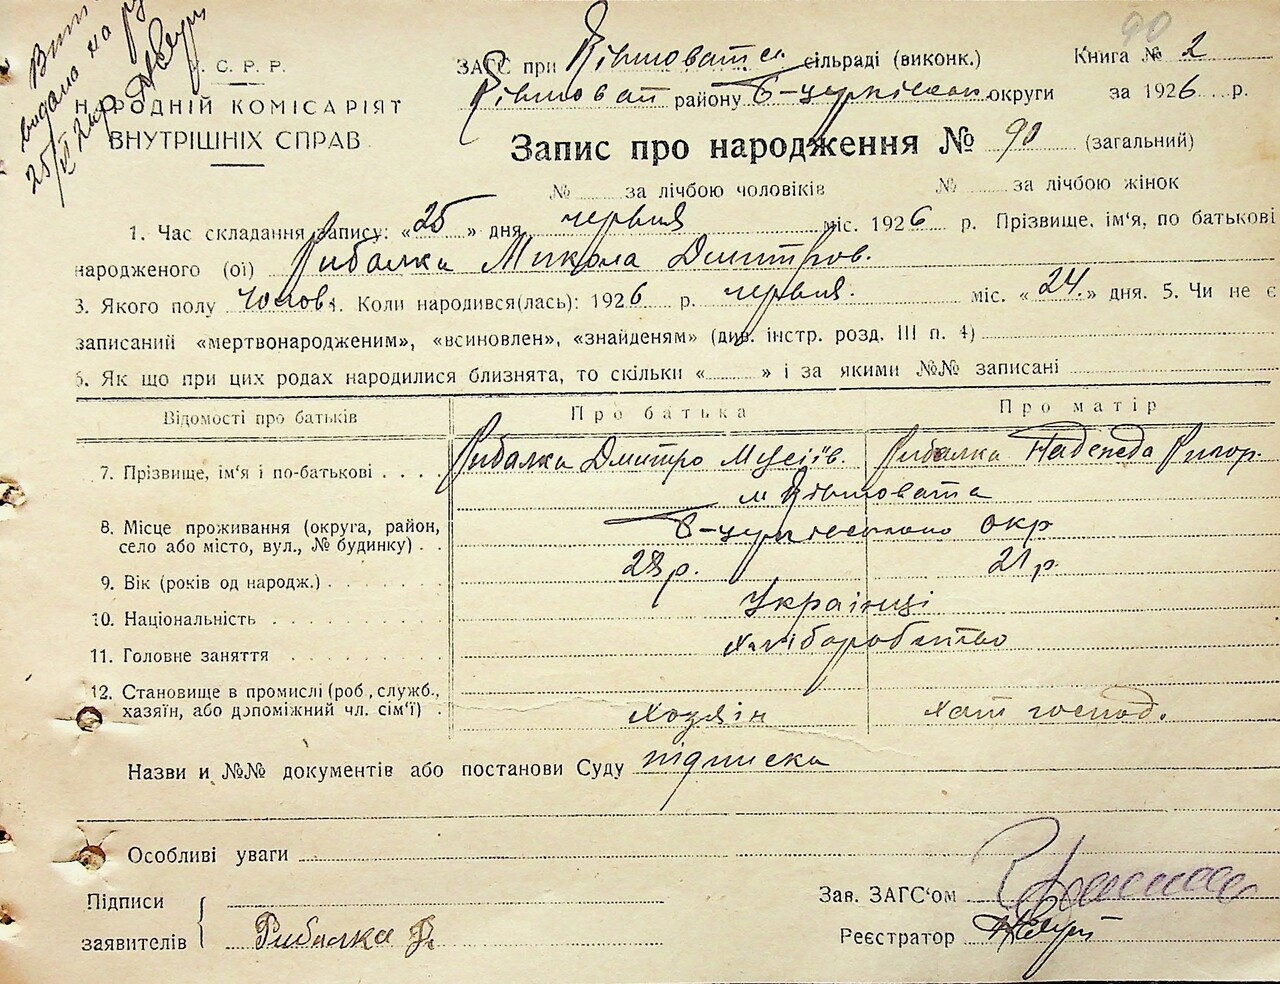 Вит
видано на р
25/VI 26 р
90
С. Р. Р.
НАРОДНІЙ КОМІСАРІЯТ
ВНУТРІШНІХ СПРАВ
ЗАГС при сільраді (виконк.)
району Б-церківськ округи
Книга № 2
за 1926 р.
Запис про народження № 90 (загальний)
№ за лічбою чоловіків № за лічбою жінок
1. Час складання запису: «25» дня червня міс. 1926 р. Прізвище, ім'я, по батькові
народженого (ої) Рибалка Микола Дмитров.
3. Якого полу чолов. 4. Коли народився(лась): 1926 р. червня. міс. «24.» дня. 5. Чи не є
записаний «мертвонародженим», «всиновлен», «знайденям» (див. інстр. розд. III п. 4)
6. Як що при цих родах народилися близнята, то скільки « » і за якими №№ записані
Відомості про батьків Про батька Про матір
7. Прізвище, ім'я і по-батькові Рибалка Дмитро Мусіїв. Рибалка Надежда Григор.
8. Місце проживання (округа, район,
село або місто, вул., № будинку) Б-церківського окр
9. Вік (років од народж.) 28 р. 21 р.
10. Національність Українці
11. Головне заняття хліборобство
12. Становище в промислі (роб., служб.,
хазяїн, або допоміжний чл. сім'ї) хозяїн хат господ.
Назви и №№ документів або постанови Суду підписка
Особливі уваги
Підписи
заявителів Рибалка Д.
Зав. ЗАГС'ом
Реєстратор